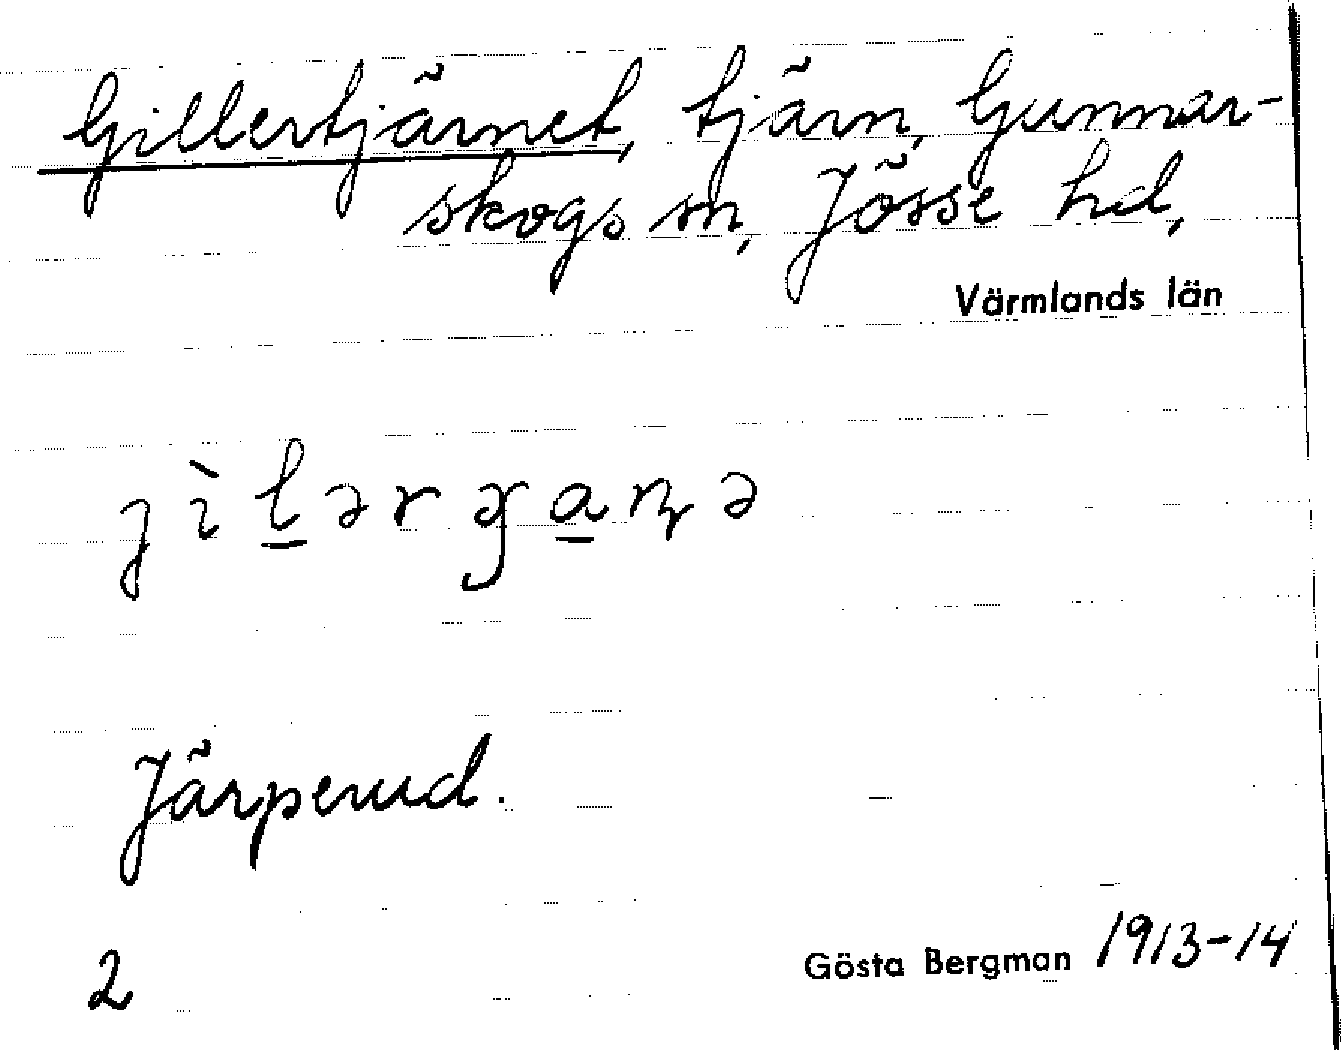 Gillertjärnet, tjärn, Gunnar-
skogs sn, Jösse hd,
Värmlands län
Järperud.
2
Gösta Bergman 1913-14